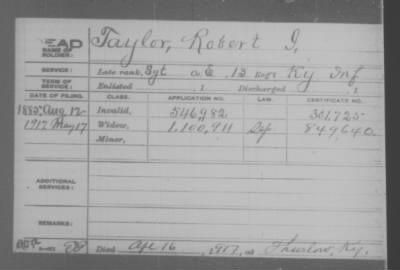 AD Taylor, Robert I,
NAME OF SOLDIER:
SERVICE: Late rank, Sgt Co. E, 13 Reg't Ky Inf
TERM OF SERVICE: Enlisted 1 Discharged 1
DATE OF FILING. CLASS. APPLICATION NO. LAW. CERTIFICATE NO.
1885, Aug 12 Invalid, 546982 301,725
1917 May 17 Widow, 1,100,911 849640
Minor,
ADDITIONAL SERVICES:
REMARKS:
Died Apl 16, 1917, at Thurlow, Ky.